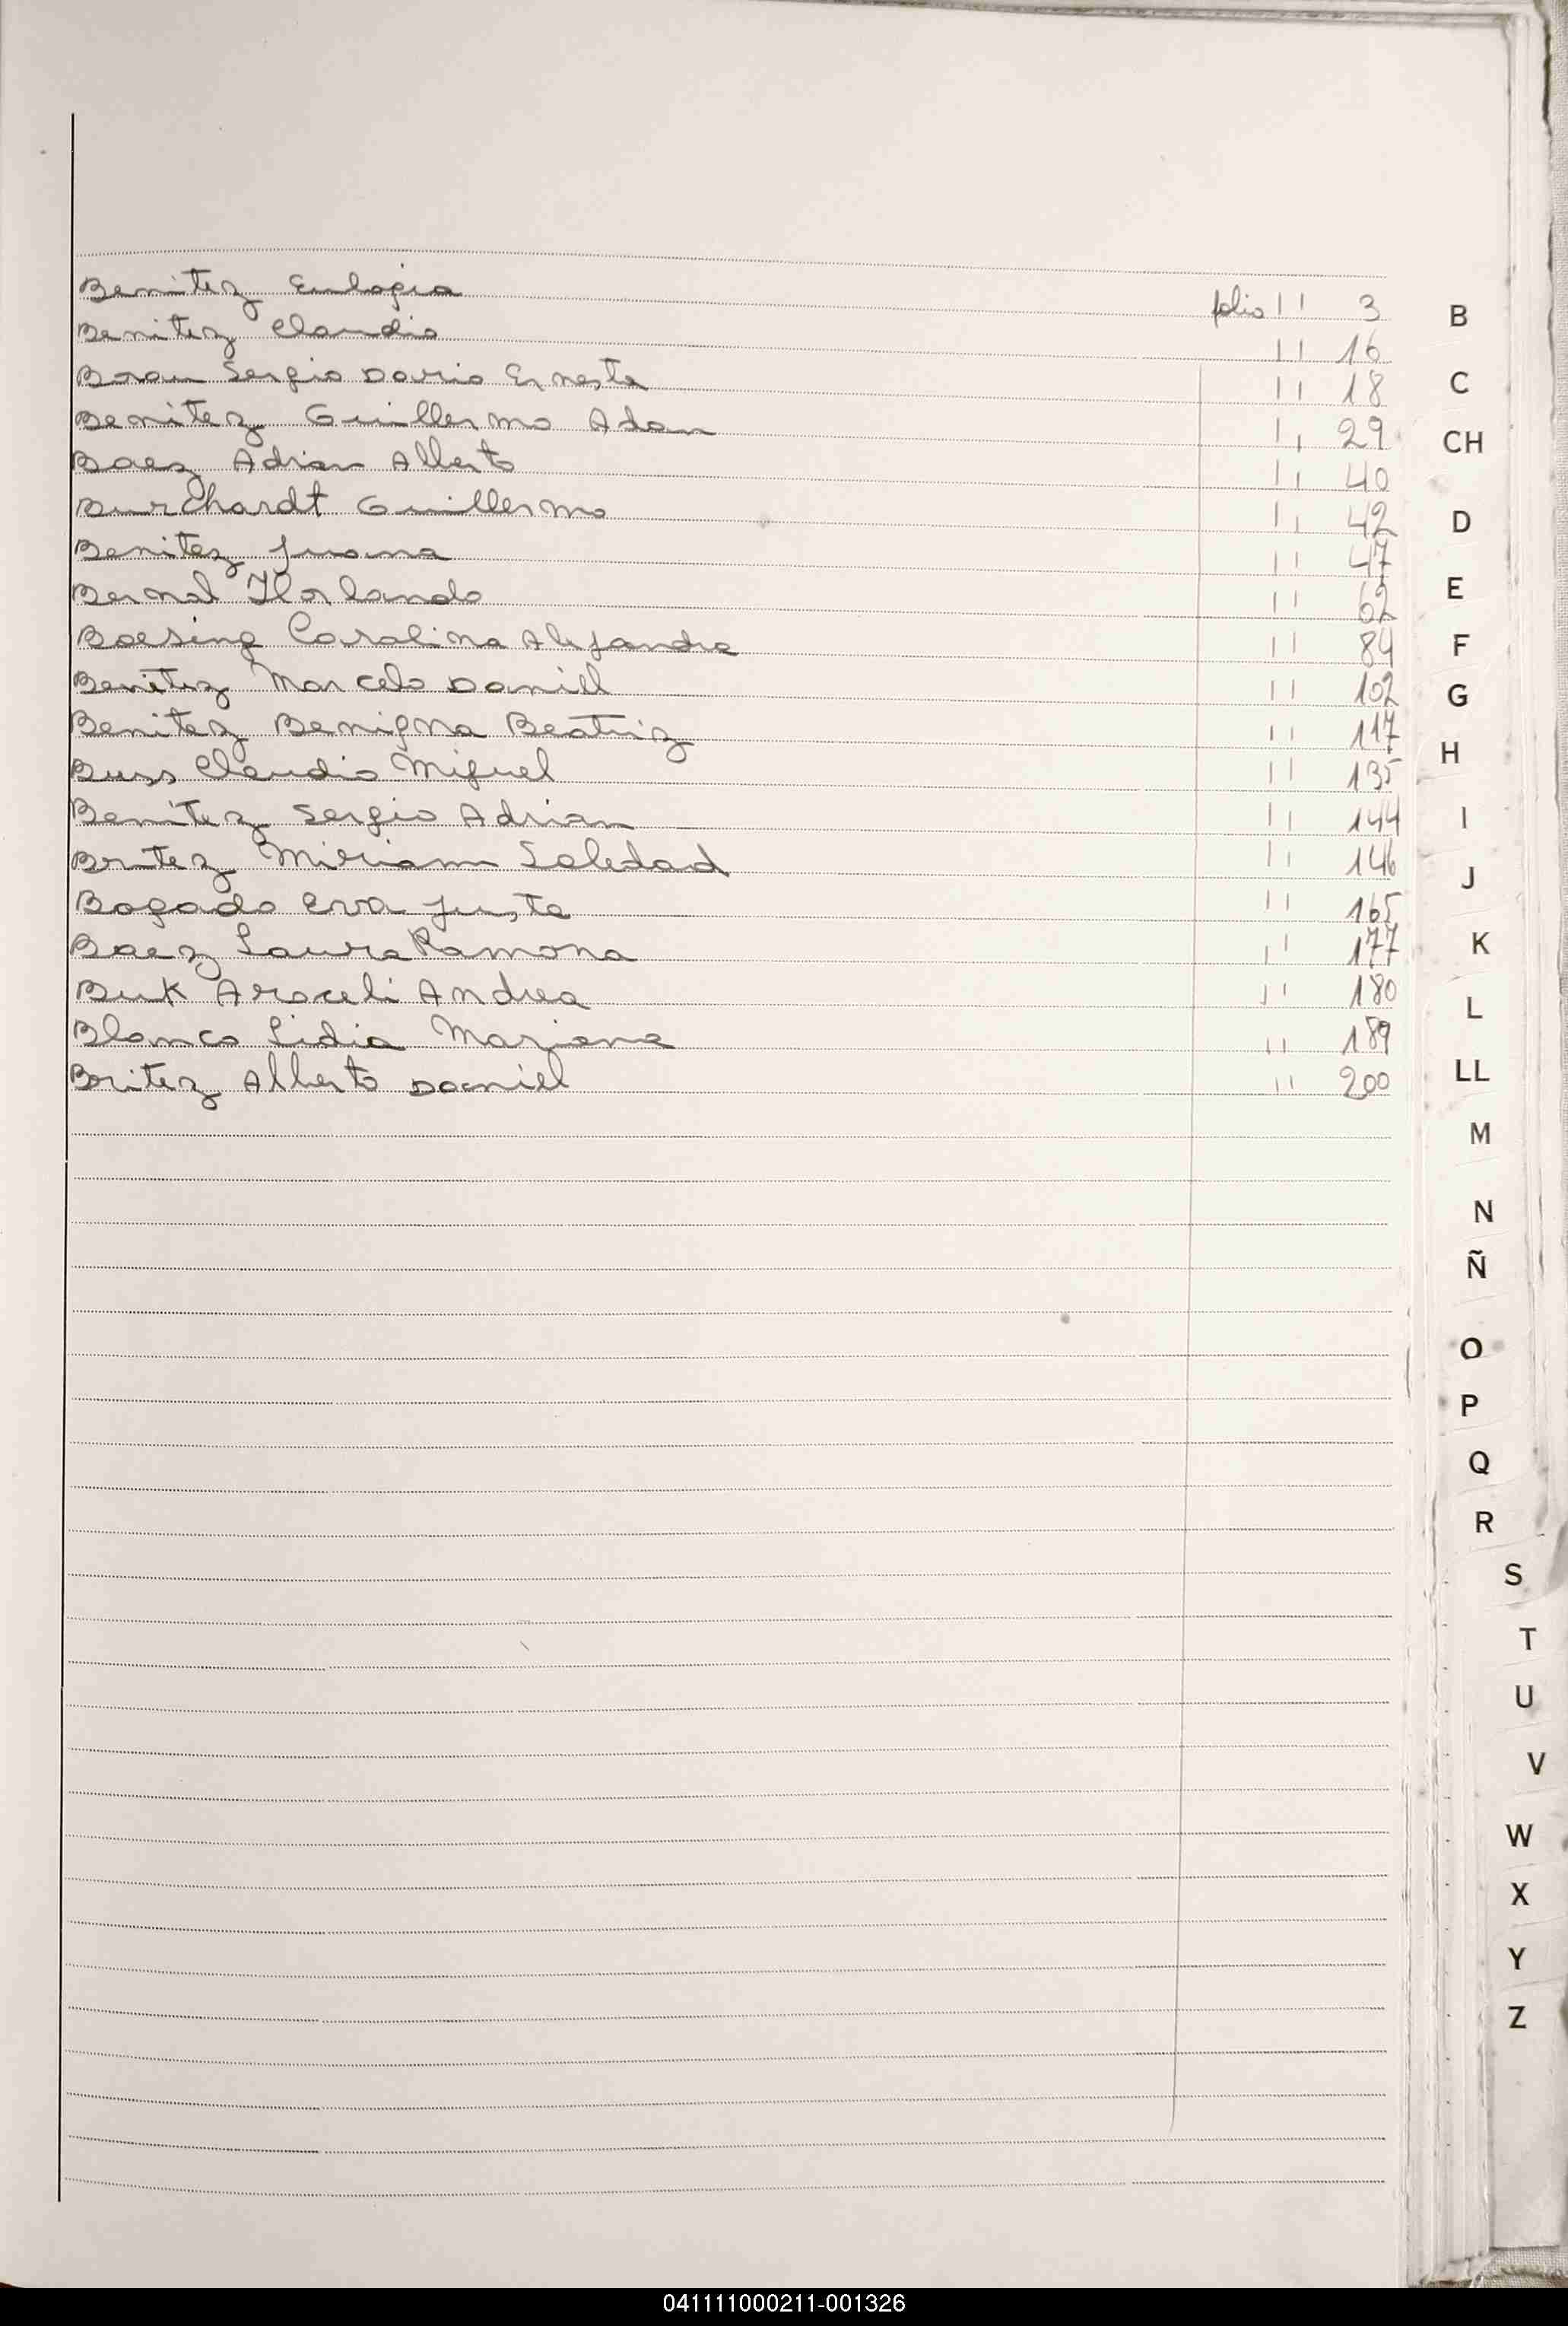 Benitez Eulogia folio 11 3
Benitez Claudio 11 16
Boran Sergio Dario Ernesto 11 18
Benitez Guillermo Adan 11 29
Baez Adrian Alberto 11 40
Burchardt Guillermo 11 42
Benitez Juana 11 47
Bernal Orlando 11 62
Boesing Carolina Alejandra 11 84
Benitez Marcelo Daniel 11 102
Benitez Benigna Beatriz 11 117
Buss Claudio Miguel 11 135
Benitez Sergio Adrian 11 144
Britez Miriam Soledad 11 146
Bogado Eva Justa 11 165
Baez Laura Ramona 11 177
Buk Araceli Andrea 11 180
Blanco Lidia Mariana 11 189
Britez Alberto Daniel 11 200
B
C
CH
D
E
F
G
H
I
J
K
L
LL
M
N
Ñ
O
P
Q
R
S
T
U
V
W
X
Y
Z
041111000211-001326